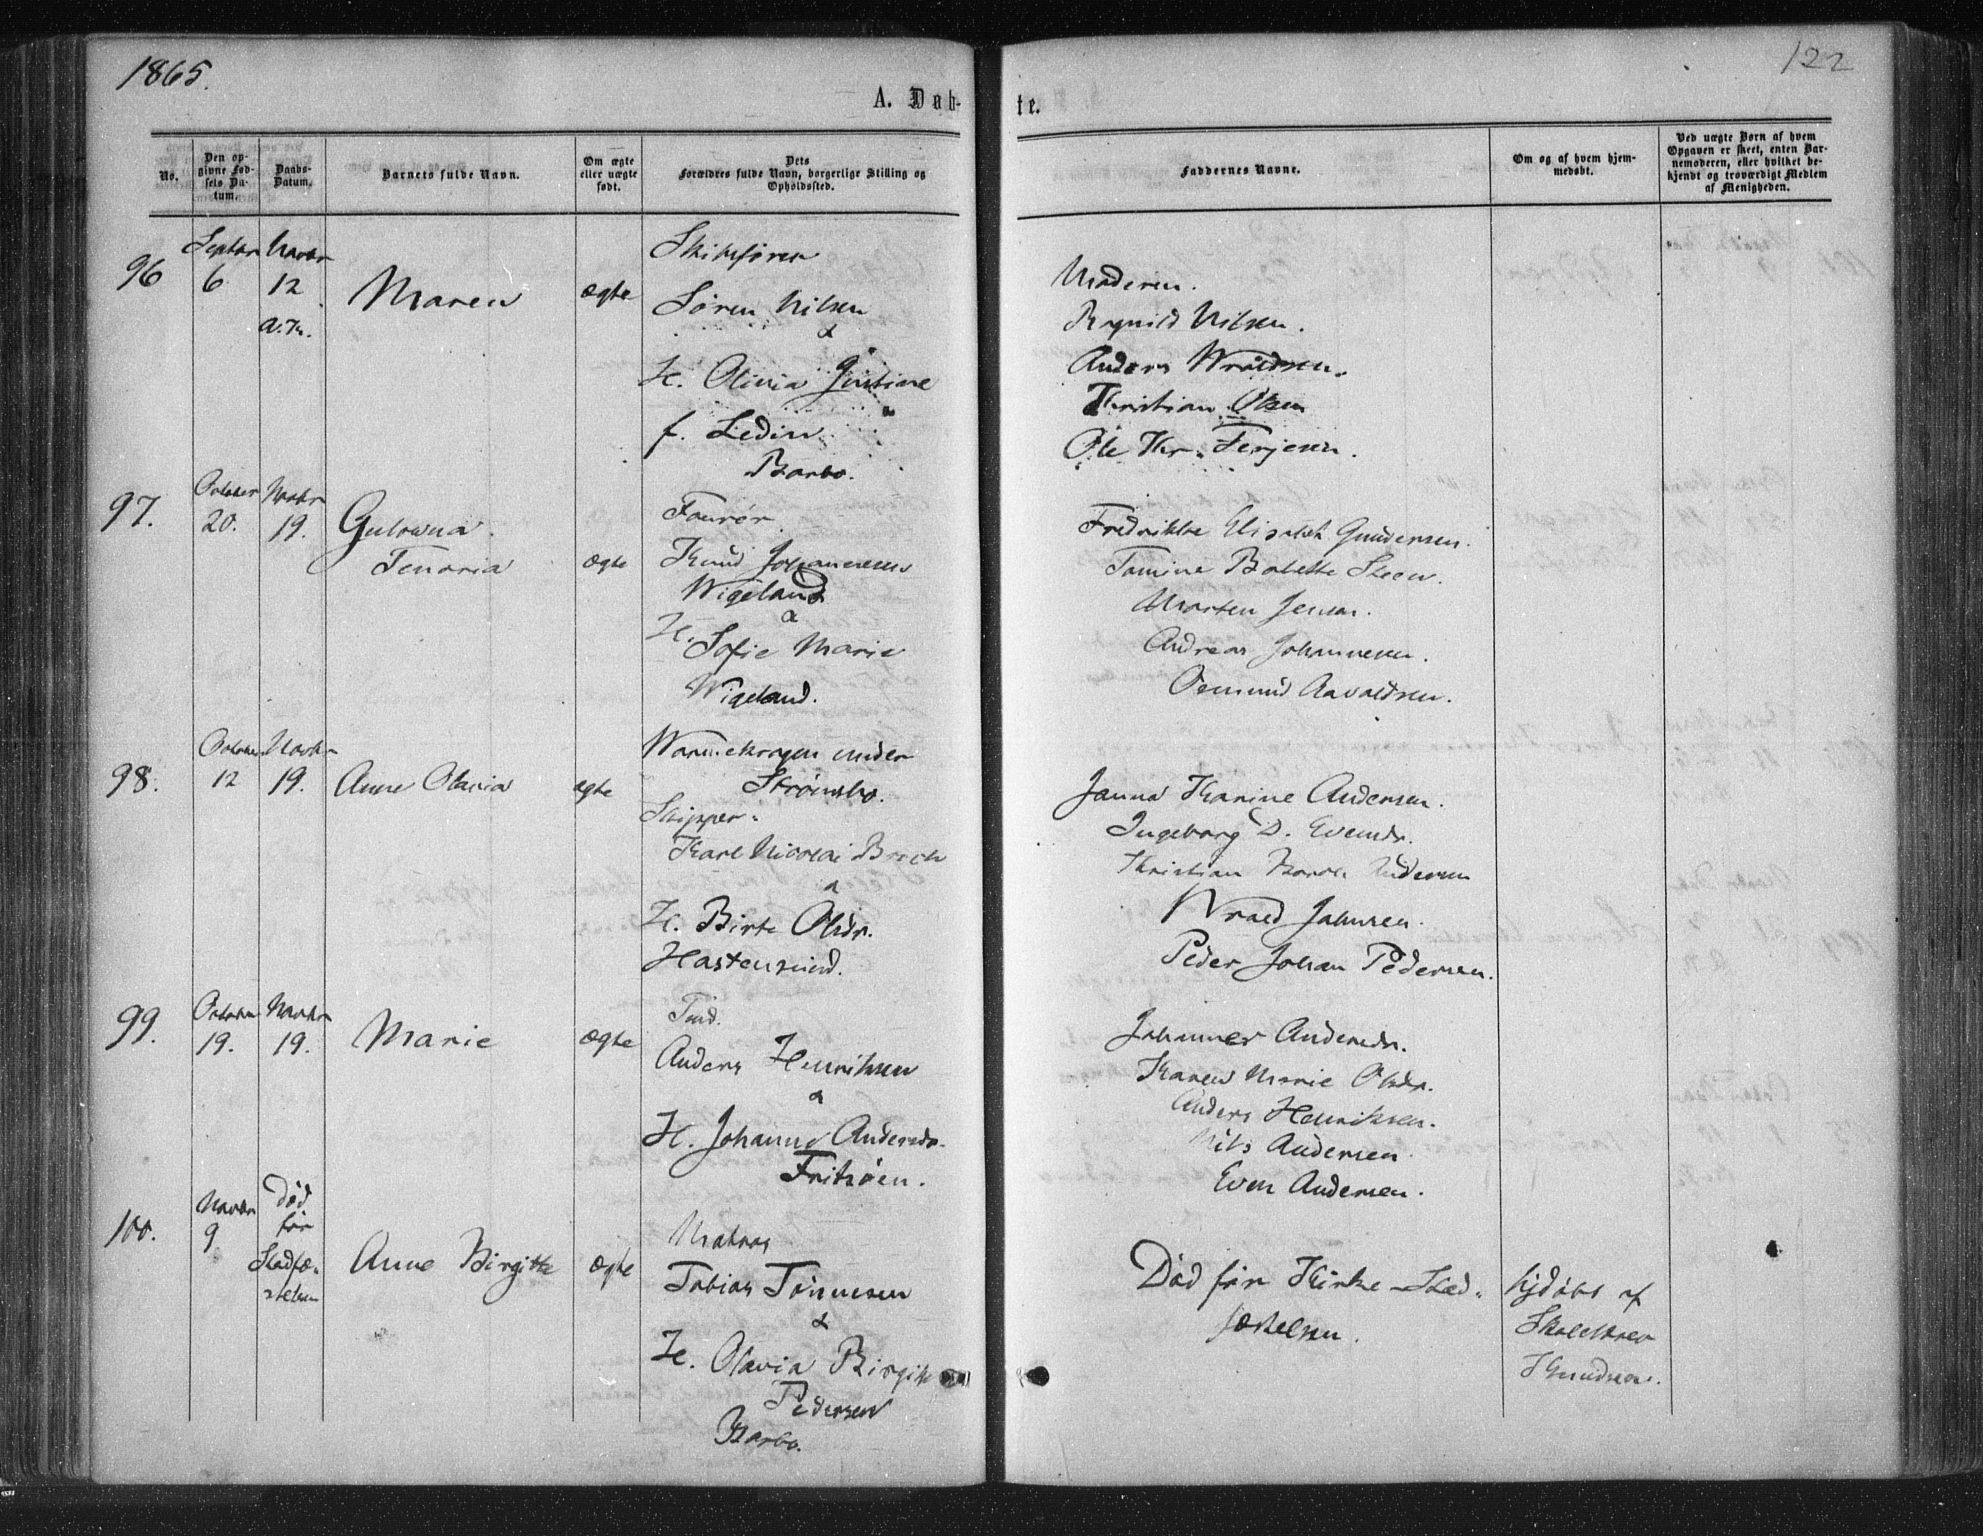 1865.
122
A. Døb-
te.
No.
Den op-
givne Fød-
sels Da-
tum.
Daabs-
Datum.
Barnets fulde Navn.
Om ægte
eller uægte
født.
Dets
Forældres fulde Navn, borgerlige Stilling og
Opholdssted.
Faddernes Navne.
Om og af hvem hjem-
medøbt.
Ved uægte Børn af hvem
Opgaven er skeet, enten Bar-
nemoderen, eller hvilket be-
kjendt og troværdigt Medlem
af Menigheden.
96
Septbr
6
Novbr
12
Maren
ægte
Skibsfører
Søren Nilsen
&
H. Olivia Gustine
f. Ledin
Barbo.
Moderen.
Ragnild Nilsen.
Anders Wroldsen.
Christian Olsen
Ole Chr. Terjesen.
97.
October
20.
Novbr
19.
Gulowna
Tenoria
ægte
Knud Johannesen
Wigeland
&
H. Sofie Marie
Wigeland.
Fredrikke Elisabeth Gundersen.
Tomine Bolette Steen.
Morten Jensen.
Andreas Johannesen.
Osmund Aavoldsen.
98.
October
12
Novbr
19.
Anne Olavia
ægte
under
Strømsbo.
Skipper
Karl Nicolai Broch
&
H. Birte Olsdr.
Hastensund.
Janna Karine Andersen.
Ingeborg D. Evensdr.
Christian Andersen
Wrold Jahnsen.
Peder Johan Pedersen.
99.
October
19.
Novbr
19.
Marie
ægte
Tmd.
Anders Henriksen
&
H. Johanne Andersdr.
Fritzøen.
Johanne Andersdr.
Karen Marie Olsdr.
Anders Henriksen.
Nils Andersen
Even Andersen.
100.
Novbr
9
Død
før
Stadfæ-
stelsen
Anne Birgitte
ægte
Matros
Tobias Tønnesen
&
H. Olavia Birgitte
Pedersen
Barbo.
Død før Kirke-Stad-
fæstelsen.
hjdøbt af
Skolelærer
Knudsen.